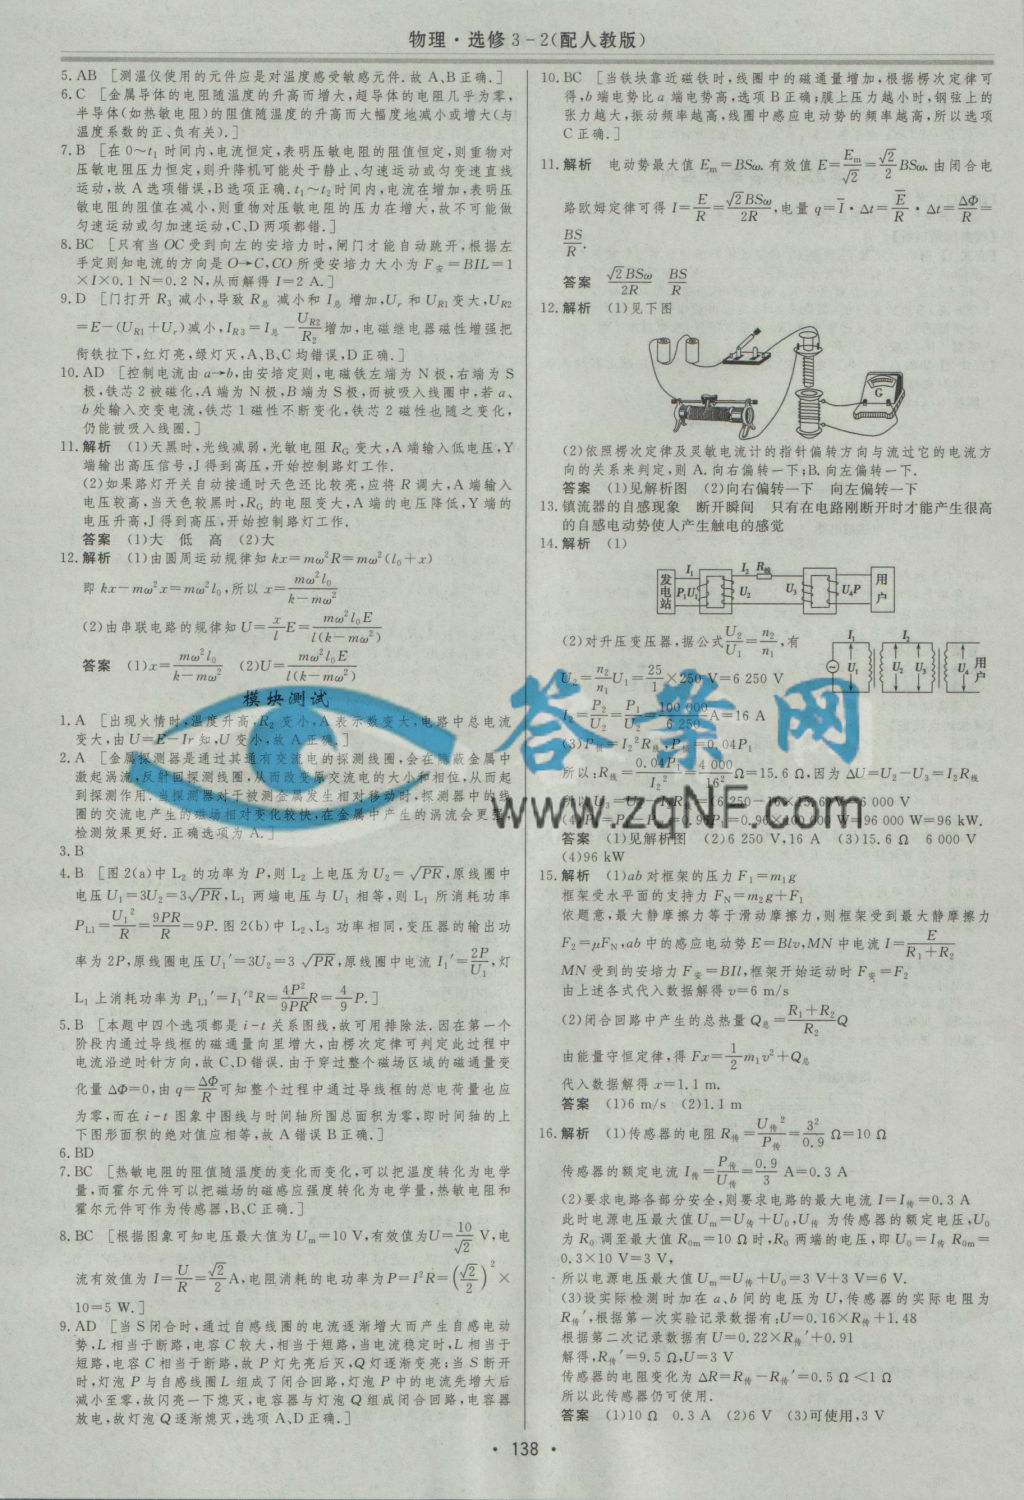 物理·选修3-2(配人教版)
5.AB [测温仪使用的元件应是对温度感受敏感元件.故A、B正确.]
6.C [金属导体的电阻随温度的升高而增大,超导体的电阻几乎为零,
半导体(如热敏电阻)的阻值随温度的升高而大幅度地减小或增大(与
温度系数的正、负有关).]
7.B [在0~t₁时间内,电流恒定,表明压敏电阻的阻值恒定,则重物对
压敏电阻压力恒定,则升降机可能处于静止、匀速运动或匀变速直线
运动,故A选项错误,B选项正确.t₁~t₂时间内,电流在增加,表明压
敏电阻的阻值在减小,则重物对压敏电阻的压力在增大,故不可能做
匀速运动或匀加速运动,C、D两项都错.]
8.BC [只有当OC受到向左的安培力时,闸门才能自动跳开,根据左
手定则知电流的方向是O→C,CO所受安培力大小为F安=BIL=1
×I×0.1 N=0.2 N,从而解得I=2 A.]
9.D [门打开R₃减小,导致R总减小和I总增加,Ur和UR1变大,UR2
=E-(UR1+Ur)减小,IR3=I总-UR2/R₂增加,电磁继电器磁性增强把
衔铁拉下,红灯亮,绿灯灭,A、B、C均错误,D正确.]
10.AD [控制电流由a→b,由安培定则,电磁铁左端为N极,右端为S
极,铁芯2被磁化,A端为N极,B端为S极,而被吸入线圈中,若a、
b处输入交变电流,铁芯1磁性不断变化,铁芯2磁性也随之变化,
仍能被吸入线圈.]
11.解析 (1)天黑时,光线减弱,光敏电阻RG变大,A端输入低电压,Y
端输出高压信号,J得到高压,开始控制路灯工作.
(2)如果路灯开关自动接通时天色还比较亮,应将R调大,A端输入
电压较高,当天色较黑时,RG的电阻变大,A端的电压降低,Y端的
电压升高,J得到高压,开始控制路灯工作.
答案 (1)大 低 高 (2)大
12.解析 (1)由圆周运动规律知kx=mω²R=mω²(l₀+x)
即kx-mω²x=mω²l₀,所以x=mω²l₀/(k-mω²)
(2)由串联电路的规律知U=(x/l)E=mω²l₀E/[l(k-mω²)]
答案 (1)x=mω²l₀/(k-mω²) (2)U=mω²l₀E/[l(k-mω²)]
模块测试
1.A [出现火情时,温度升高,R₂变小,A表示数变大,电路中总电流
变大,由U=E-Ir知,U变小,故A正确.]
2.A [金属探测器是通过其通有交流电的探测线圈,会在隐蔽金属中
激起涡流,反射回探测线圈,从而改变原交流电的大小和相位,从而起
到探测作用.当探测器对于被测金属发生相对移动时,探测器中的线
圈的交流电产生的磁场相对变化较快,在金属中产生的涡流会更强,
检测效果更好.正确选项为A.]
3.B
4.B [图2(a)中L₂的功率为P,则L₂上电压为U₂=√PR,原线圈中
电压U₁=3U₂=3√PR,L₁两端电压与U₁相等,则L₁所消耗功率
PL1=U₁²/R=9PR/R=9P.图2(b)中L₂、L₃功率相同,变压器的输出功
率为2P,原线圈电压U₁′=3U₂=3√PR,原线圈中电流I₁′=2P/U₁,灯
L₁上消耗功率为PL1′=I₁′²R=(4P²/9PR)R=(4/9)P.]
5.B [本题中四个选项都是i-t关系图线,故可用排除法.因在第一个
阶段内通过导线框的磁通量向里增大,由楞次定律可判定此过程中
电流沿逆时针方向,故C、D错误.由于穿过整个磁场区域的磁通量变
化量ΔΦ=0,由q=ΔΦ/R可知整个过程中通过导线框的总电荷量也应
为零,而在i-t图象中图线与时间轴所围总面积为零,即时间轴的上
下图形面积的绝对值应相等,故A错误B正确.]
6.BD
7.BC [热敏电阻的阻值随温度的变化而变化,可以把温度转化为电学
量,而霍尔元件可以把磁场的磁感应强度转化为电学量,热敏电阻和
霍尔元件可作为传感器,B、C正确.]
8.BC [根据图象可知电压最大值为Um=10 V,有效值为U=10/√2 V,电
流有效值为I=U/R=√2/2 A,电阻消耗的电功率为P=I²R=(√2/2)²×
10=5 W.]
9.AD [当S闭合时,通过自感线圈的电流逐渐增大而产生自感电动
势,L相当于断路,电容C较大,相当于短路,当电流稳定时,L相当于
短路,电容C相当于断路,故P灯先亮后灭,Q灯逐渐变亮;当S断开
时,灯泡P与自感线圈L组成了闭合回路,灯泡P中的电流先增大后
减小至零,故闪亮一下熄灭,电容器与灯泡Q组成闭合回路,电容器
放电,故灯泡Q逐渐熄灭,选项A、D正确.]
10.BC [当铁块靠近磁铁时,线圈中的磁通量增加,根据楞次定律可
得,b端电势比a端电势高,选项B正确;膜上压力越小时,钢弦上的
张力越大,振动频率越高,线圈中感应电动势的频率越高,所以选项
C正确.]
11.解析 电动势最大值Em=BSω.有效值E=Em/√2=(√2/2)BSω.由闭合电
路欧姆定律可得I=E/R=√2BSω/2R,电量q=I̅·Δt=E̅/R·Δt=ΔΦ/R=
BS/R.
答案 √2BSω/2R BS/R
12.解析 (1)见下图
G
(2)依照楞次定律及灵敏电流计的指针偏转方向与流过它的电流方
向的关系来判定,则A.向右偏转一下;B.向左偏转一下.
答案 (1)见解析图 (2)向右偏转一下 向左偏转一下
13.镇流器的自感现象 断开瞬间 只有在电路刚断开时才能产生很高
的自感电动势使人产生触电的感觉
14.解析 (1)
发电站 I₁ P₁U₁ I₂ R线 U₂ U₃ U₄P 用户
(2)对升压变压器,据公式U₂/U₁=n₂/n₁,有
U₂=(n₂/n₁)U₁=(25/1)×250 V=6 250 V
I₁ I₂ U₁ U₂ U₃ U₄ 用户
I₂=P₂/U₂=P₁/U₂=100 000/6 250 A=16 A
(3)P损=I₂²R线,P损=0.04P₁
所以:R线=0.04P₁/I₂²=4 000/16² Ω=15.6 Ω,因为ΔU=U₂-U₃=I₂R线
(1)见解析图 (2)6 250 V,16 A (3)15.6 Ω 6 000 V
(4)96 kW
15.解析 (1)ab对框架的压力F₁=m₁g
框架受水平面的支持力FN=m₂g+F₁
依题意,最大静摩擦力等于滑动摩擦力,则框架受到最大静摩擦力
F₂=μFN,ab中的感应电动势E=Blv,MN中电流I=E/(R₁+R₂)
MN受到的安培力F安=BIl,框架开始运动时F安=F₂
由上述各式代入数据解得v=6 m/s
(2)闭合回路中产生的总热量Q总=(R₁+R₂)/R₂ Q
由能量守恒定律,得Fx=(1/2)m₁v²+Q总
代入数据解得x=1.1 m.
答案 (1)6 m/s (2)1.1 m
16.解析 (1)传感器的电阻R传=U传²/P传=3²/0.9 Ω=10 Ω
传感器的额定电流I传=P传/U传=0.9/3 A=0.3 A
(2)要求电路各部分安全,则要求电路的最大电流I=I传=0.3 A
此时电源电压最大值Um=U传+U₀,U传为传感器的额定电压,U₀
为R₀调至最大值R0m=10 Ω时,R₀两端的电压,即U₀=I传R0m=
0.3×10 V=3 V,
所以电源电压最大值Um=U传+U₀=3 V+3 V=6 V.
(3)设实际检测时加在a、b间的电压为U,传感器的实际电阻为
R传′,根据第一次实验记录数据有:U=0.16×R传′+1.48
根据第二次记录数据有U=0.22×R传′+0.91
解得,R传′=9.5 Ω,U=3 V
传感器的电阻变化为ΔR=R传-R传′=0.5 Ω<1 Ω
所以此传感器仍可使用.
答案 (1)10 Ω 0.3 A (2)6 V (3)可使用,3 V
·138·
答案网
www.zqNF.com